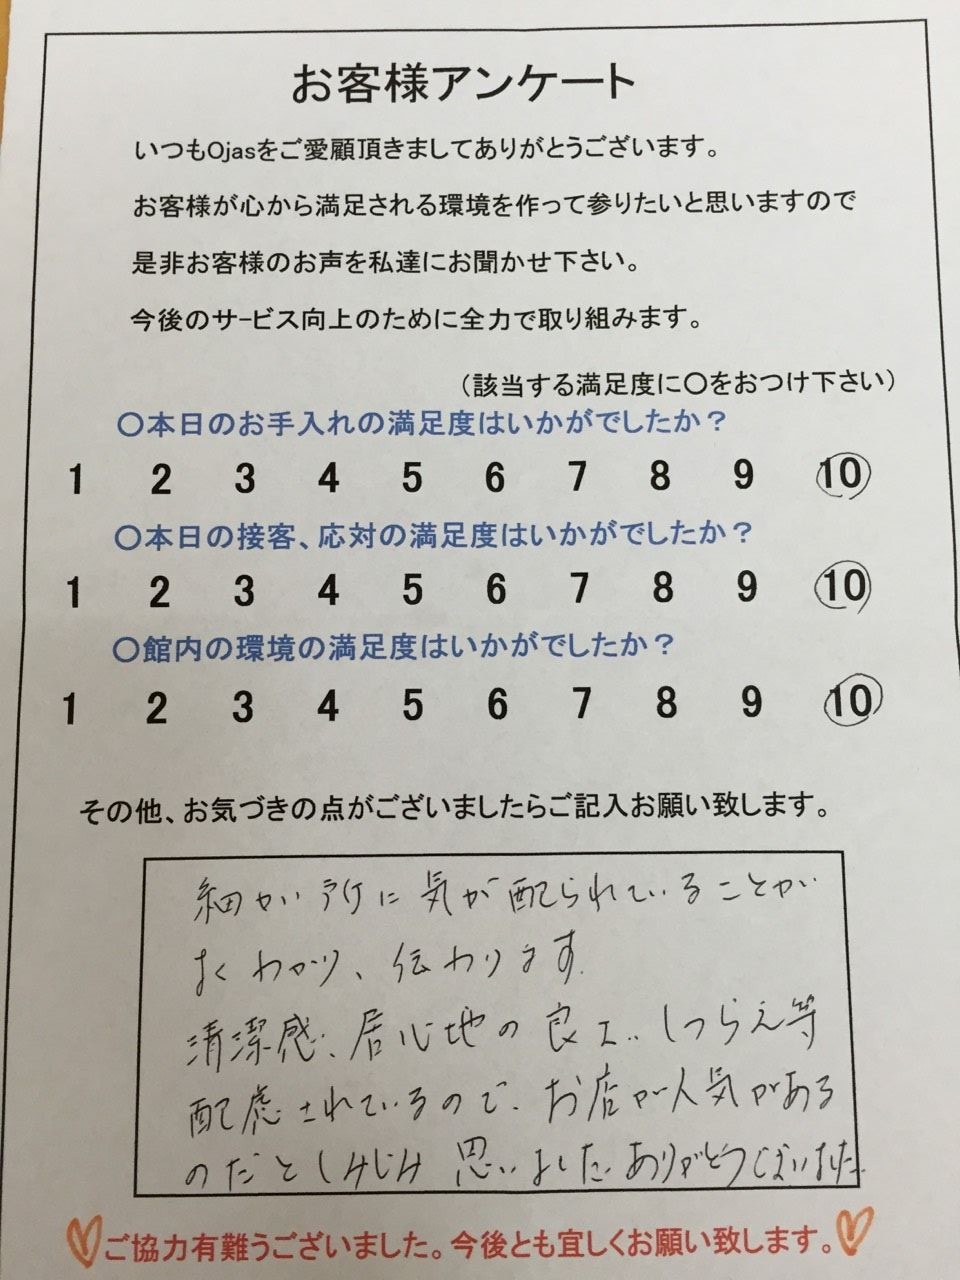 お客様アンケート
いつもOjasをご愛顧頂きましてありがとうございます。
お客様が心から満足される環境を作って参りたいと思いますので
是非お客様のお声を私達にお聞かせ下さい。
今後のサービス向上のために全力で取り組みます。
（該当する満足度に〇をおつけ下さい）
〇本日のお手入れの満足度はいかがでしたか？
1 2 3 4 5 6 7 8 9 10
〇本日の接客、応対の満足度はいかがでしたか？
1 2 3 4 5 6 7 8 9 10
〇館内の環境の満足度はいかがでしたか？
1 2 3 4 5 6 7 8 9 10
その他、お気づきの点がございましたらご記入お願い致します。
細かい所に気が配られていることが
よくわかり、伝わります。
清潔感、居心地の良さ、しつらえ等
配慮されているので、お店が人気がある
のだとしみじみ思いました。ありがとうございました。
ご協力有難うございました。今後とも宜しくお願い致します。